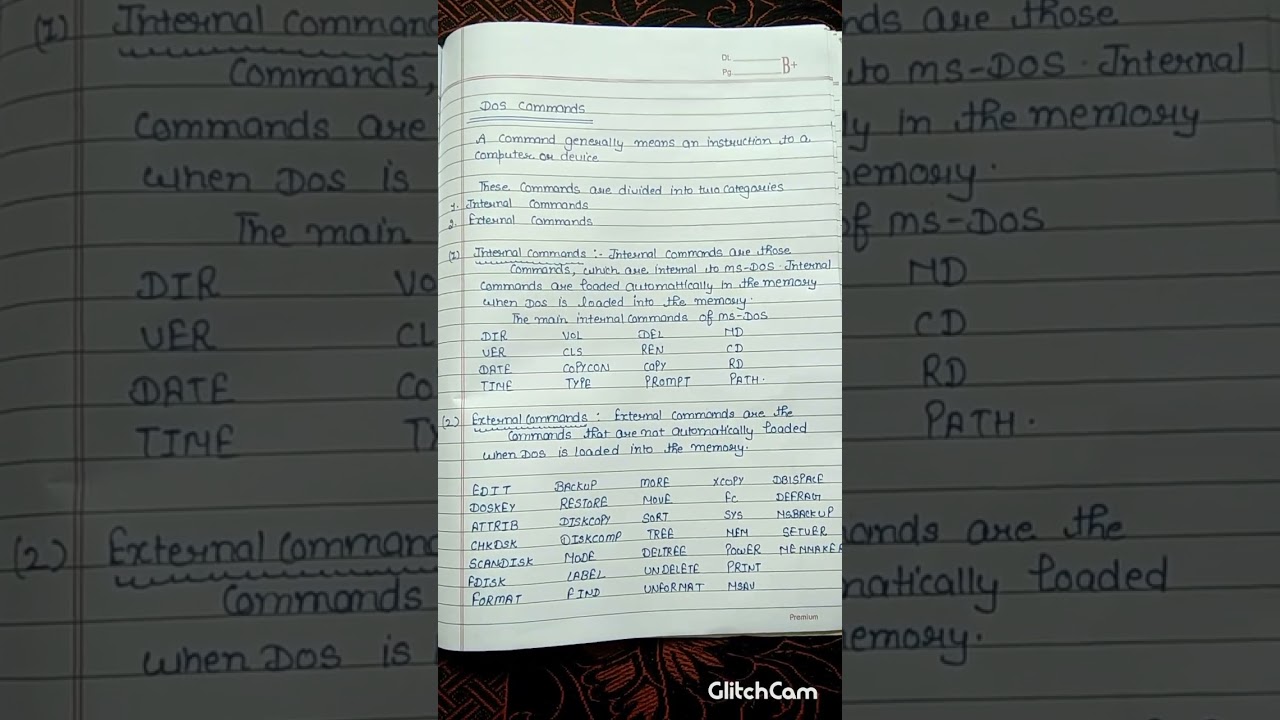 Dt.
Pg. B+
DOS Commands
A Command generally means an instruction to a
Computer or device
These Commands are divided into two categories
1. Internal Commands
2. External Commands
(1) Internal Commands :- Internal Commands are those
Commands, which are internal to MS-DOS. Internal
Commands are loaded automattically in the memory
when DOS is loaded into the memory.
The main internal Commands of MS-DOS
DIR VOL DEL MD
VER CLS REN CD
DATE COPYCON COPY RD
TIME TYPE PROMPT PATH.
(2.) External Commands : External Commands are the
Commands that are not automatically loaded
when DOS is loaded into the memory.
EDIT BACKUP MORE XCOPY DBISPACE
DOSKEY RESTORE MOVE FC DEFRAG
ATTRIB DISKCOPY SORT SYS MSBACKUP
CHKDSK DISKCOMP TREE MEM SETVER
SCANDISK MODE DELTREE POWER MEMMAKER
FDISK LABEL UNDELETE PRINT
FORMAT FIND UNFORMAT MSAV
Premium
GlitchCam